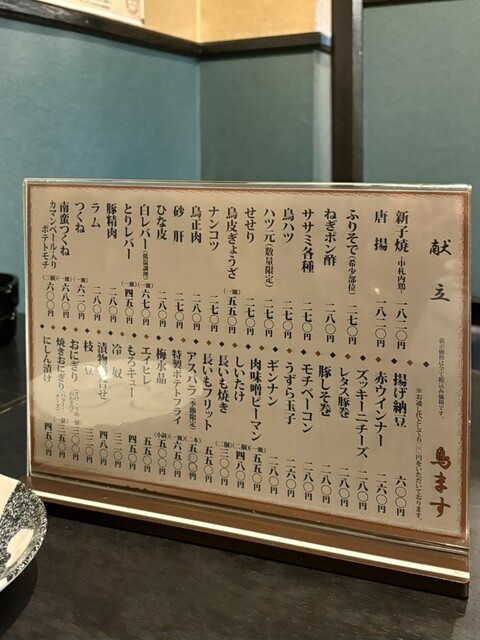 献立
表示価格は全て税込み価格です。
※お通し代として五〇〇円をいただいております。
鳥ます
新子焼(中札内鶏) 一八二〇円
唐揚 一八二〇円
ふりそで(希少部位) 二七〇円
ねぎポン酢 二八〇円
ササミ各種 二八〇円
鳥ハツ 二七〇円
ハツ元(数量限定) 二七〇円
せせり 二七〇円
鳥皮ぎょうざ(一個)五五〇円
ナンコツ 二七〇円
鳥正肉 二七〇円
砂肝 二七〇円
ひな皮 二八〇円
白レバー(低温調理)(一個)六七〇円
とりレバー(一個)四五〇円
豚精肉 二八〇円
ラム 二八〇円
つくね(一個)二八〇円
南蛮つくね(一個)六八〇円
カマンベール入りポテトモチ(二個)六〇〇円
揚げ納豆 六〇〇円
赤ウインナー 二六〇円
ズッキーニチーズ 二八〇円
レタス豚巻 二八〇円
豚しそ巻 二八〇円
モチベーコン 二八〇円
うずら玉子 二六〇円
ギンナン 二八〇円
肉味噌ピーマン(一個)五五〇円
しいたけ(二個)二八〇円
長いも焼き(二個)三〇〇円
長いもフリット 五五〇円
アスパラ(季節限定)(二本)五五〇円
特製ポテトフライ 六五〇円
梅水晶(小鉢)五〇〇円
エイヒレ 五五〇円
もろキュー 四五〇円
冷奴 三二〇円
漬物盛合せ 四八〇円
枝豆 三三〇円
おにぎり
焼きおにぎり
にしん漬け 四五〇円